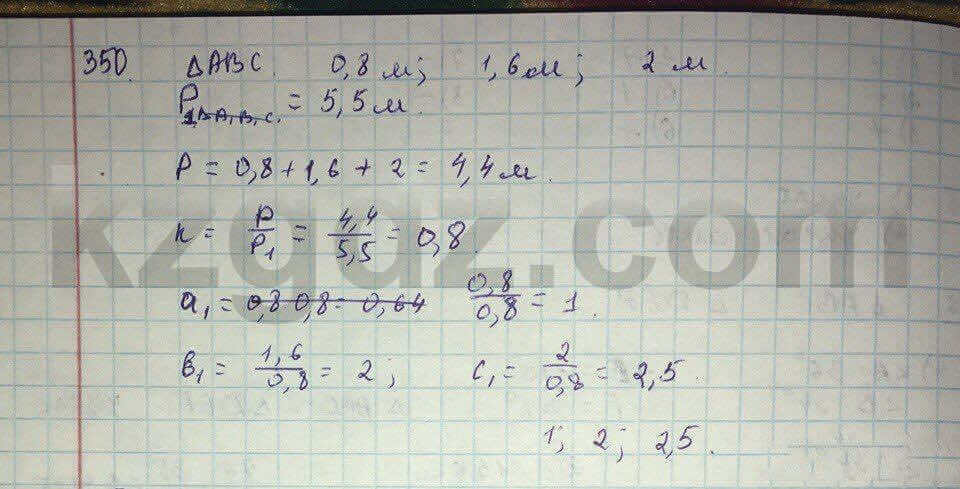 350. ΔABC. 0,8 м; 1,6 м; 2 м.
P ΔA₁B₁C₁ = 5,5 м.
P = 0,8 + 1,6 + 2 = 4,4 м.
k = P/P₁ = 4,4/5,5 = 0,8
a₁ = 0,8·0,8 = 0,64 0,8/0,8 = 1.
в₁ = 1,6/0,8 = 2; c₁ = 2/0,8 = 2,5.
1; 2; 2,5.
kzgdz.com